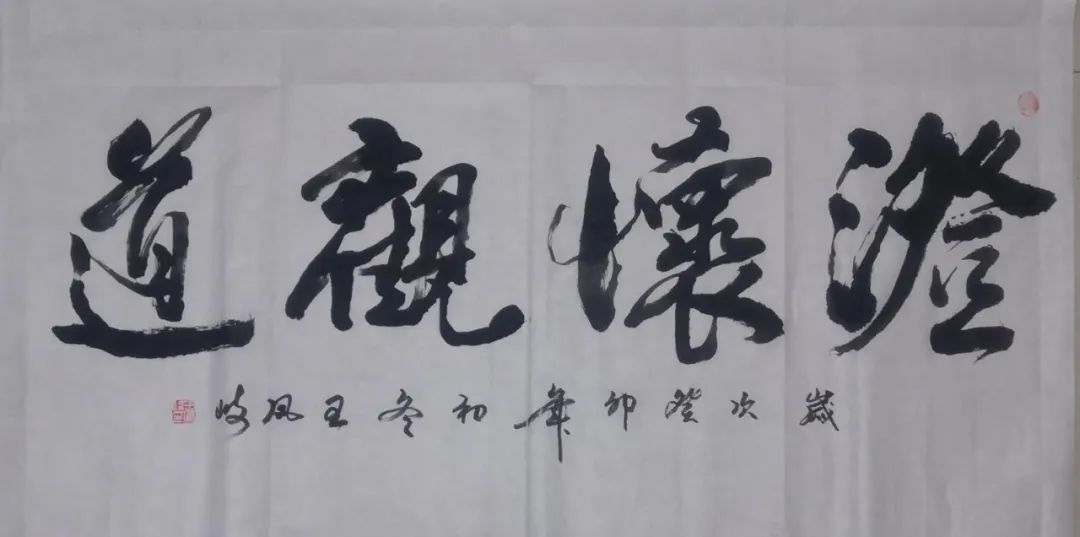 澄懷觀道
歲次癸卯年初冬王凤岐